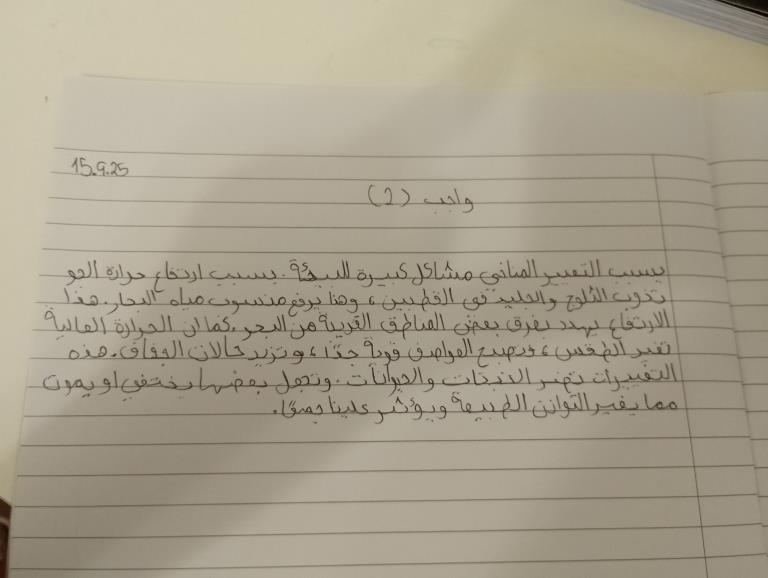 15.9.25
واجب (2)
يسبب التغيير المناخي مشاكل كبيرة للبيئة. بسبب ارتفاع حرارة الجو
تذوب الثلوج والجليد في القطبين، وهذا يرفع منسوب مياه البحار. هذا
الارتفاع يهدد بغرق بعض المناطق القريبة من البحر. كما ان الحرارة العالية
تغير الطقس، وتصبح العواصف قوية جدًا، وتزيد حالات الجفاف. هذه
التغييرات تضر النباتات والحيوانات. وتجعل بعضها يختفي او يموت
مما يغير التوازن الطبيعة ويؤثر علينا جميعًا.